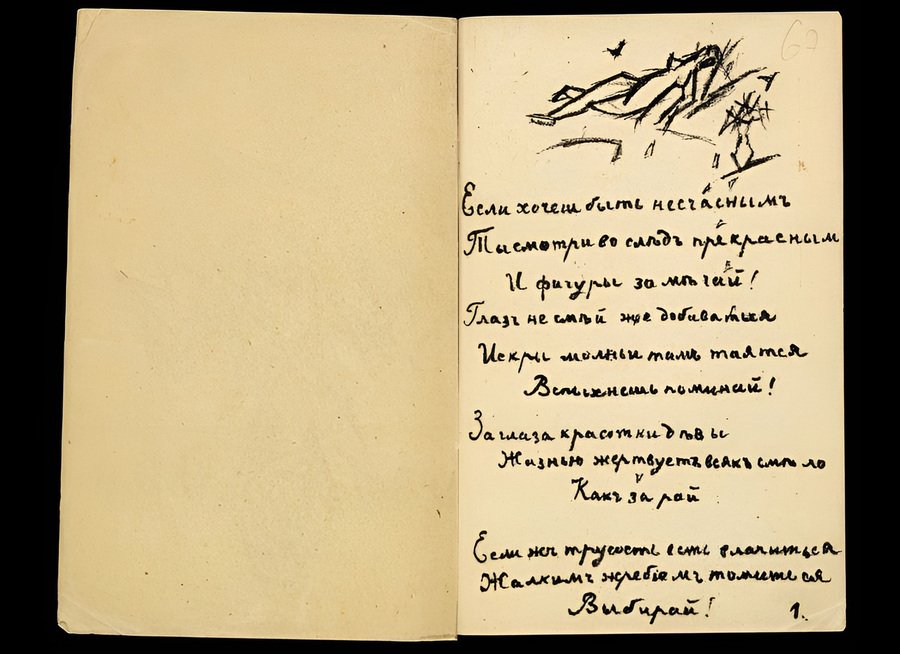 67
Если хочеш быть несчаснымъ
Ты смотри во слѣдъ прекрасным
И фигуры замѣчай!
Глазъ не смѣй же добиваться
Искры молньи тамъ таятся
Вспыхнешь поминай!
За глаза красотки дѣвы
Жизнью жертвуетъ всякъ смѣло
Какъ за рай
Если жъ трусость есть влачиться
Жалкимъ жребіемъ томиться
Выбирай!
1.